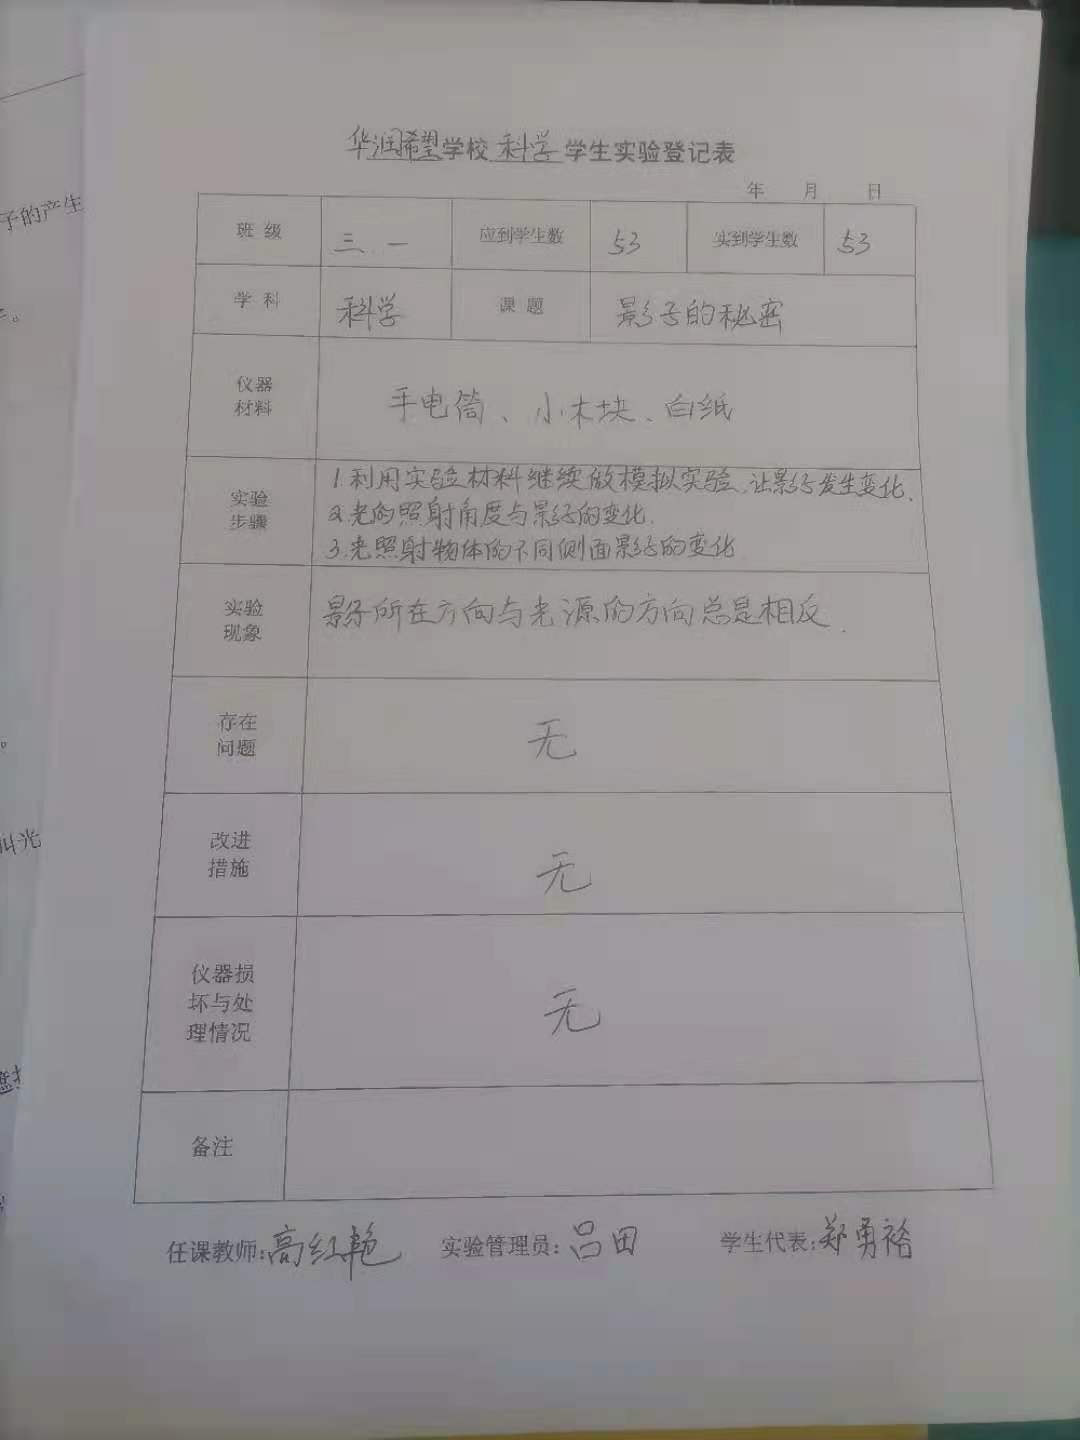 子的产生
。
。
叫光
华润希望学校 科学 学生实验登记表
年 月 日
班级 三.一 应到学生数 53 实到学生数 53
学科 科学 课题 影子的秘密
仪器
材料
手电筒、小木块、白纸
实验
步骤
1.利用实验材料继续做模拟实验,让影子发生变化.
2.光的照射角度与影子的变化.
3.光照射物体的不同侧面影子的变化
实验
现象
影子所在方向与光源的方向总是相反.
存在
问题
无
改进
措施
无
仪器损
坏与处
理情况
无
备注
任课教师:高红艳 实验管理员:吕田 学生代表:郑勇裕